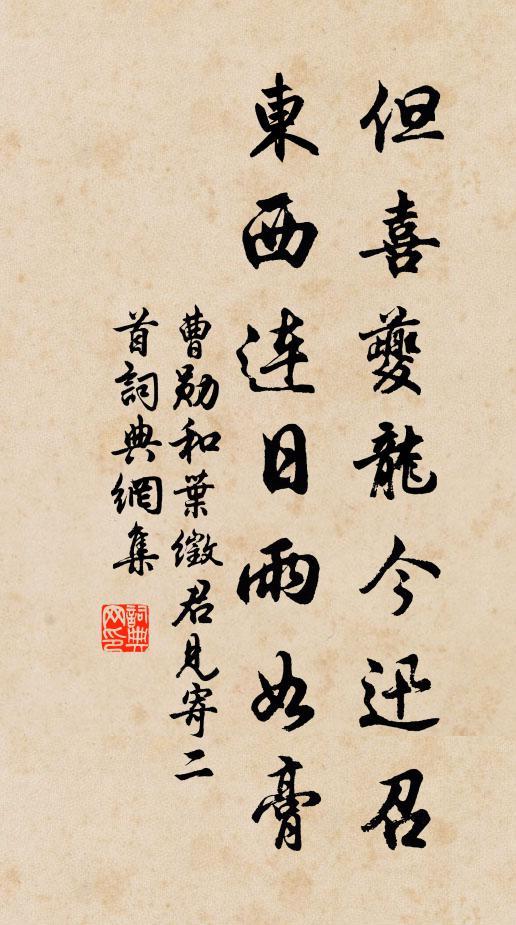 但喜夔龍今迅召
東西連日雨如膏
曹勛和葉徵君見寄二
首詞典網集
詞典網印